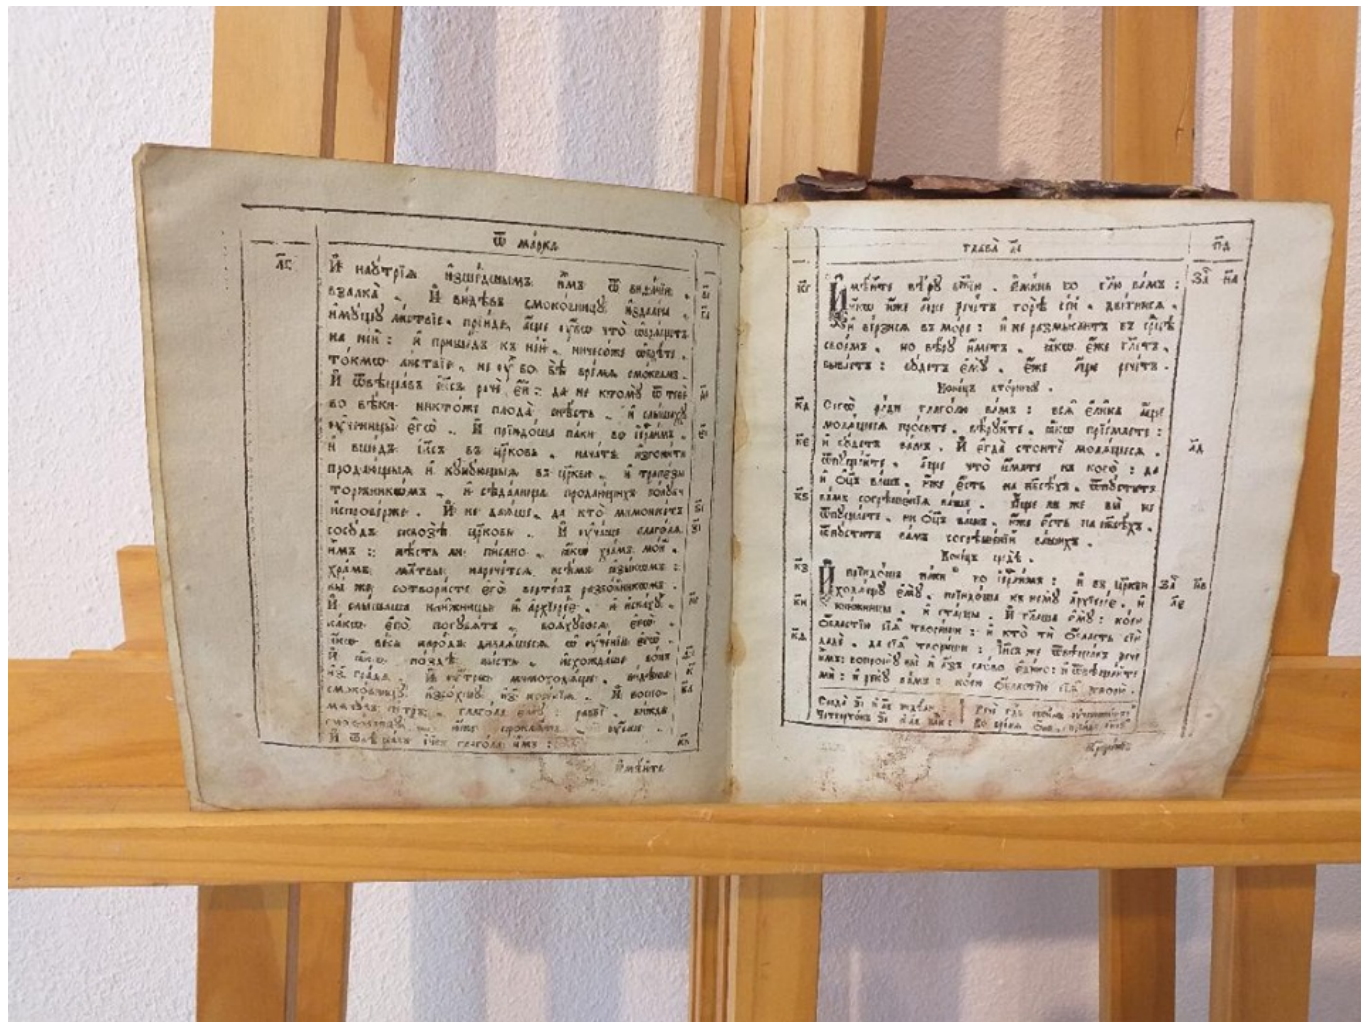 Ѿ ма́рка
л҃є
И҆ наꙋ́трїѧ и҆зше́дшымъ и҆̀мъ ѿ виѳа́нїи,
взалка̀. И҆ ви́дѣвъ смоко́вницꙋ и҆здале́ча
и҆мꙋ́щꙋ ли́ствїе, прїи́де, а҆́ще ᲂу҆́бѡ что̀ ѡ҆брѧ́щетъ
на не́й: и҆ прише́дъ къ не́й, ничесо́же ѡ҆брѣ́те,
то́кмѡ ли́ствїе, не ᲂу҆̀ бо бѣ̀ вре́мѧ смо́квамъ.
И҆ ѿвѣща́въ і҆и҃съ речѐ є҆́й: да не ктомꙋ̀ ѿ тебє̀
во вѣ́ки никто́же плода̀ снѣ́сть. и҆ слы́шахꙋ
ᲂу҆чн҃цы̀ є҆гѡ̀. И҆ прїидо́ша па́ки во і҆ерⷭ҇ли́мъ,
и҆ вше́дъ і҆и҃съ въ цр҃ковь, нача́тъ и҆згони́ти
продаю́щыѧ и҆ кꙋпꙋ́ющыѧ въ цр҃кви, и҆ трапе́зы
торжникѡ́мъ, и҆ сѣда́лища продаю́щихъ го́лꙋби
и҆спрове́рже. И҆ не даѧ́ше, да кто̀ мимонесе́тъ
сосꙋ́дъ сквозѣ̀ цр҃ковь. И҆ ᲂу҆ча́ше глаго́лѧ
и҆̀мъ: нѣ́сть ли пи́сано, ꙗ҆́кѡ хра́мъ мо́й,
хра́мъ мл҃твы нарече́тсѧ всѣ̑мъ ꙗ҆зы́кѡмъ:
вы́ же сотвори́сте є҆го̀ верте́пъ разбо́йникѡмъ.
И҆ слы́шаша кни́жницы и҆ а҆рхїере́є, и҆ и҆ска́хꙋ
ка́кѡ є҆го̀ погꙋ́бѧтъ, боѧ́хꙋсѧ є҆гѡ̀,
ꙗ҆́кѡ ве́сь наро́дъ дивлѧ́шесѧ ѡ҆ ᲂу҆че́нїи є҆гѡ̀.
И҆ ꙗ҆́кѡ по́здѣ бы́сть, и҆схожда́ше во́нъ
и҆з̾ гра́да. И҆ ᲂу҆́трѡ мимоходѧ́ще, ви́дѣша
смоко́вницꙋ и҆зсо́хшꙋ и҆з̾ коре́нїѧ. И҆ воспо-
мѧнꙋ́въ пе́тръ, глаго́ла є҆мꙋ̀: раввї̀, ви́ждь
смоко́вницꙋ, ю҆́же проклѧ́лъ, ᲂу҆́сше.
И҆ ѿвѣща́въ і҆и҃съ глаго́ла и҆̀мъ:
И҆мѣ́йте
глава̀ а҃і
п҃д
к҃г
И҆мѣ́йте вѣ́рꙋ бж҃їю. а҆ми́нь бо гл҃ю ва́мъ:
ꙗ҆́кѡ и҆́же а҆́ще рече́тъ горѣ̀ се́й, дви́гнисѧ,
и҆ ве́рзисѧ въ мо́ре: и҆ не размы́слитъ въ се́рдцѣ
свое́мъ, но вѣ́рꙋ и҆́метъ, ꙗ҆́кѡ є҆́же гл҃етъ,
быва́етъ: бꙋ́детъ є҆мꙋ̀, є҆́же а҆́ще рече́тъ.
Коне́цъ вто́рникꙋ.
к҃д
Сегѡ̀ ра́ди глаго́лю ва́мъ: всѧ̑ є҆ли̑ка а҆́ще
молѧ́щесѧ про́сите, вѣ́рꙋйте, ꙗ҆́кѡ прїе́млете:
к҃є
и҆ бꙋ́детъ ва́мъ. И҆ є҆гда̀ стоитѐ молѧ́щесѧ,
ѿпꙋща́йте, а҆́ще что̀ и҆́мате на кого̀: да
и҆ ѻ҆ц҃ъ ва́шъ, и҆́же є҆́сть на нб҃сѣ́хъ, ѿпꙋ́ститъ
к҃ѕ
ва́мъ согрѣшє́нїѧ ва̑ша. А҆́ще ли же вы̀ не
ѿпꙋща́ете, ни ѻ҆ц҃ъ ва́шъ, и҆́же є҆́сть на нб҃сѣ́хъ,
ѿпꙋ́ститъ ва́мъ согрѣше́нїй ва́шихъ.
Коне́цъ средѣ̀.
к҃з
И҆ прїидо́ша па́ки во і҆ерⷭ҇ли́мъ: и҆ въ цр҃кви
ходѧ́щꙋ є҆мꙋ̀, прїидо́ша къ немꙋ̀ а҆рхїере́є, и҆
к҃и
кни́жницы, и҆ ста́рцы. И҆ гл҃аша є҆мꙋ̀: ко́ею
ѻ҆́бластїю сїѧ̑ твори́ши: и҆ кто́ ти ѻ҆́бласть сїю̀
дадѐ, да сїѧ̑ твори́ши: і҆и҃съ же ѿвѣща́въ речѐ
и҆̀мъ: вопрошꙋ̀ вы̀ и҆ а҆́зъ сло́во є҆ди́но: и҆ ѿвѣща́йте
мѝ: и҆ рекꙋ̀ ва́мъ: ко́ею ѻ҆́бластїю сїѧ̑ творю̀.